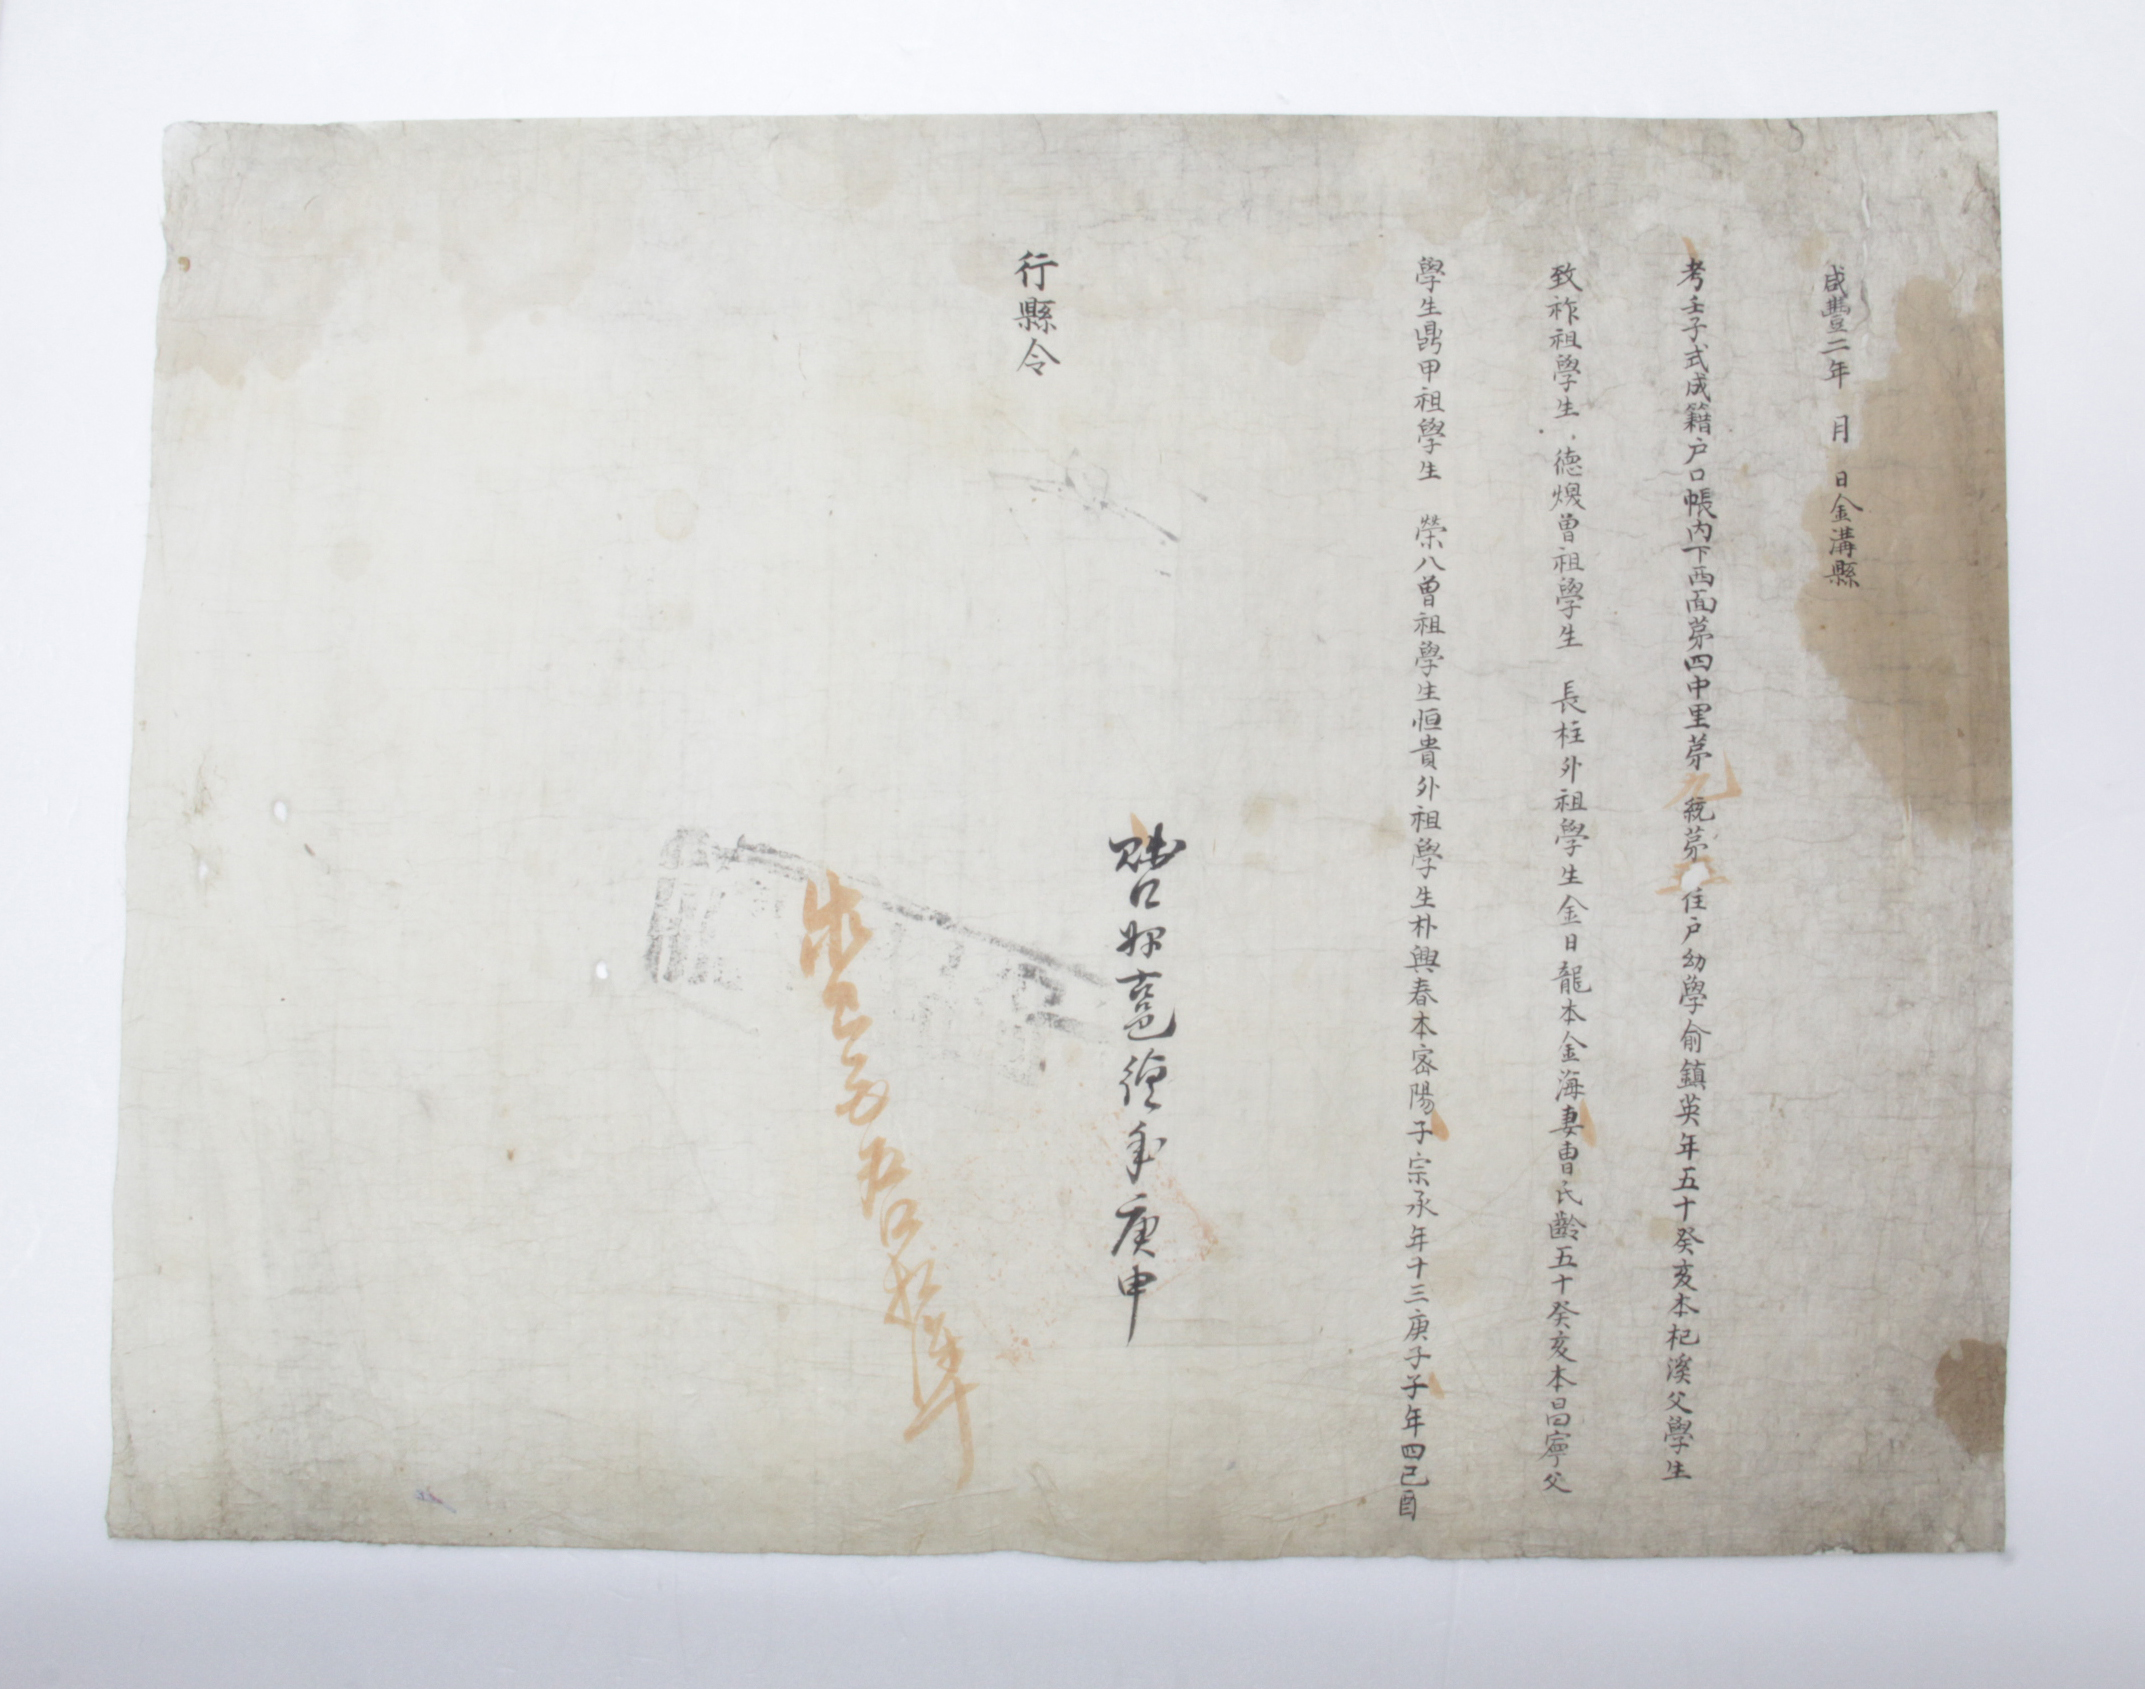 咸豐二年　月　日金溝縣
考壬子式成籍戶口帳內下西面苐四中里苐九統苐五住戶幼學俞鎮英年五十癸亥本杞溪父學生
致祚祖學生　德煥曾祖學生　長柱外祖學生金日龍本金海妻曺氏齡五十癸亥本昌寧父
學生鼎甲祖學生　榮八曾祖學生恒貴外祖學生朴興春本密陽子宗承年十三庚子子年四己酉
口年庚申
行縣令